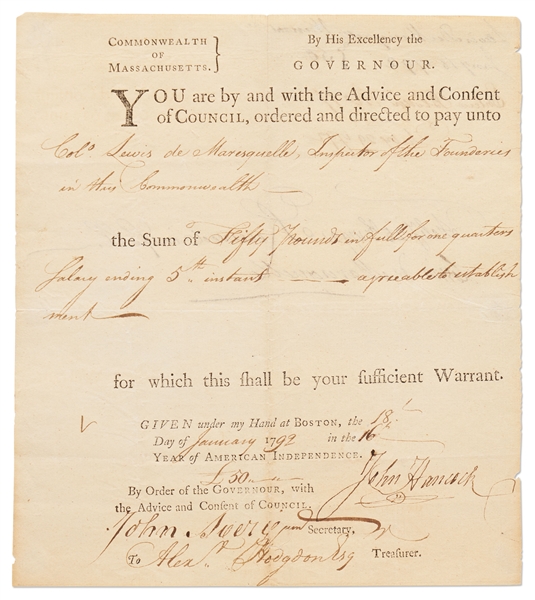 COMMONWEALTH
OF
MASSACHUSETTS.
By His Excellency the
GOVERNOUR.
YOU are by and with the Advice and Consent
of COUNCIL, ordered and directed to pay unto
Colo. Lewis de Maresquelle, Inspector of the Founderies
in this Commonwealth —
the Sum of Fifty Pounds in full for one quarters
Salary ending 5th instant — agreable to establish
ment —
for which this shall be your sufficient Warrant.
GIVEN under my Hand at BOSTON, the 18th
Day of January 1792 in the 16th
YEAR OF AMERICAN INDEPENDENCE.
£50
John Hancock
By Order of the GOVERNOUR, with
the Advice and Consent of COUNCIL.
John Avery junr Secretary,
To Alexr. Hodgdon Esq Treasurer.